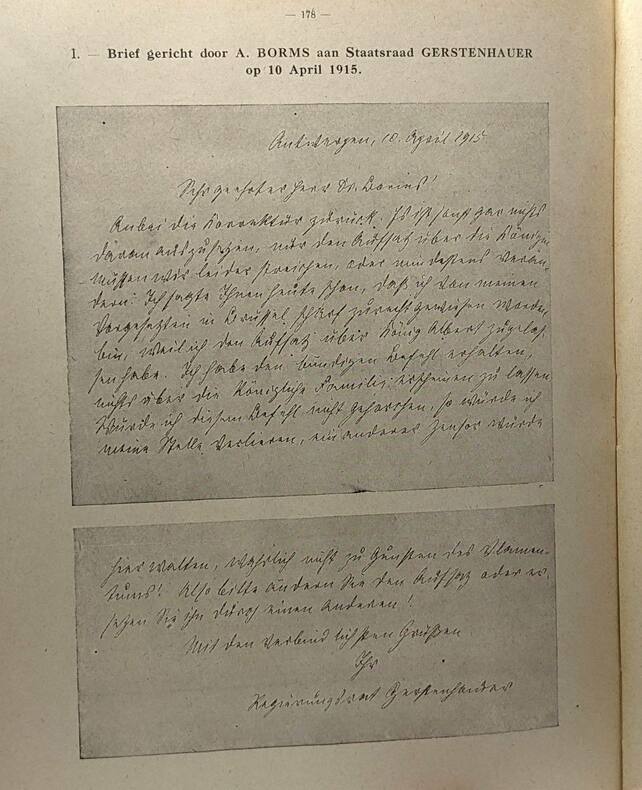 — 178 —
1. — Brief gericht door A. BORMS aan Staatsraad GERSTENHAUER
op 10 April 1915.
Antwerpen, 10. April 1915
Sehr geehrter Herr Dr. Borms!
Anbei die Korrektur zurück. Es ist sonst gar nichts
daran auszusetzen, nur den Aufsatz über die Königin
müssen wir leider streichen, oder mindestens verän-
dern. Ich sagte Ihnen heute schon, daß ich von meinen
Vorgesetzten in Brüssel scharf zurecht gewiesen worden
bin, weil ich den Aufsatz über König Albert zugelas-
sen habe. Ich habe den bündigen Befehl erhalten,
nichts über die Königliche Familie erscheinen zu lassen
Würde ich diesem Befehl nicht gehorchen, so würde ich
meine Stelle verlieren, ein anderer Zensor würde
hier walten, wahrlich nicht zu Gunsten des Vlamen-
tums! Also bitte ändern Sie den Aufsatz oder er-
setzen Sie ihn durch einen anderen!
Mit den verbindlichsten Grüßen
Ihr
Regierungsrat Gerstenhauer